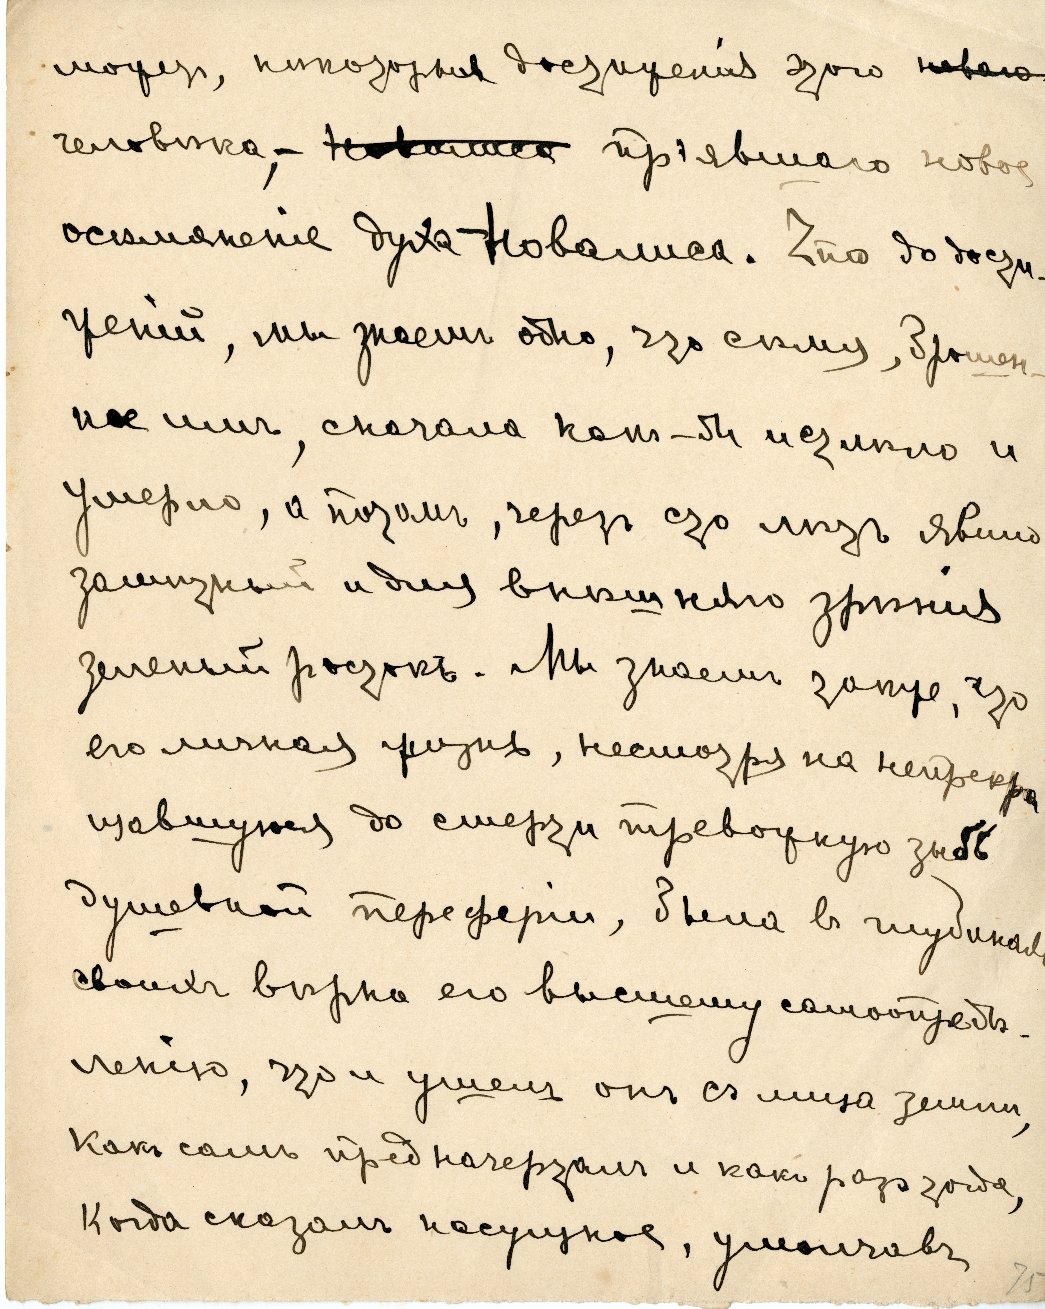 можетъ, нѣкоторыя достиженія этого ~~новаго~~
человѣка, – ~~Новалиса~~ пріявшаго новое
осіяніе духа – Новалиса. Что до дости-
женій, мы знаемъ одно, что сѣмя, брошен-
ное имъ, сначала какъ-бы истлѣло и
умерло, а потомъ, черезъ сто лѣтъ явило
замѣтный и для внѣшняго зрѣнія
зеленый ростокъ. Мы знаемъ также, что
его личная жизнь, несмотря на непрекра
щавшуюся до смерти тревожную зыбь
душевной переферіи, была въ глубинахъ
своихъ вѣрна его высшему самоопредѣ-
ленію, что и ушелъ онъ съ лица земли,
какъ самъ предначерталъ и какъ разъ тогда,
когда сказалъ насущное, умолчавъ
75